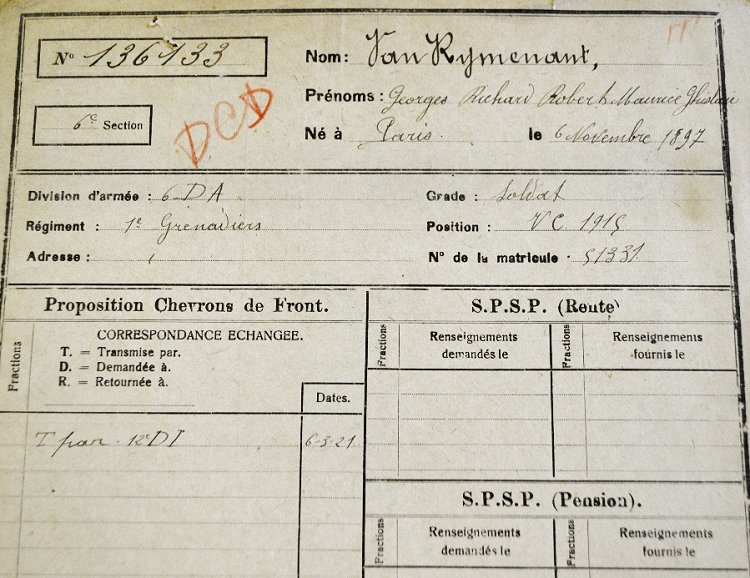 N° 136133
Nom: Van Rymenant,
Prénoms: Georges Richard Robert Maurice Ghislain
6e Section
DCD
Né à Paris. le 6 Novembre 1897
Division d'armée: 6 DA
Grade: Soldat
Régiment: 1e Grenadiers
Position: VC 1915
Adresse:
N° de la matricule. 51331
Proposition Chevrons de Front.
S.P.S.P. (Rente)
Fractions
CORRESPONDANCE ECHANGEE.
T. = Transmise par.
D. = Demandée à.
R. = Retournée à.
Dates.
Fractions
Renseignements
demandés le
Fractions
Renseignements
fournis le
T par. 12e DI 6-3-21
S.P.S.P. (Pension).
Fractions
Renseignements
demandés le
Fractions
Renseignements
fournis le